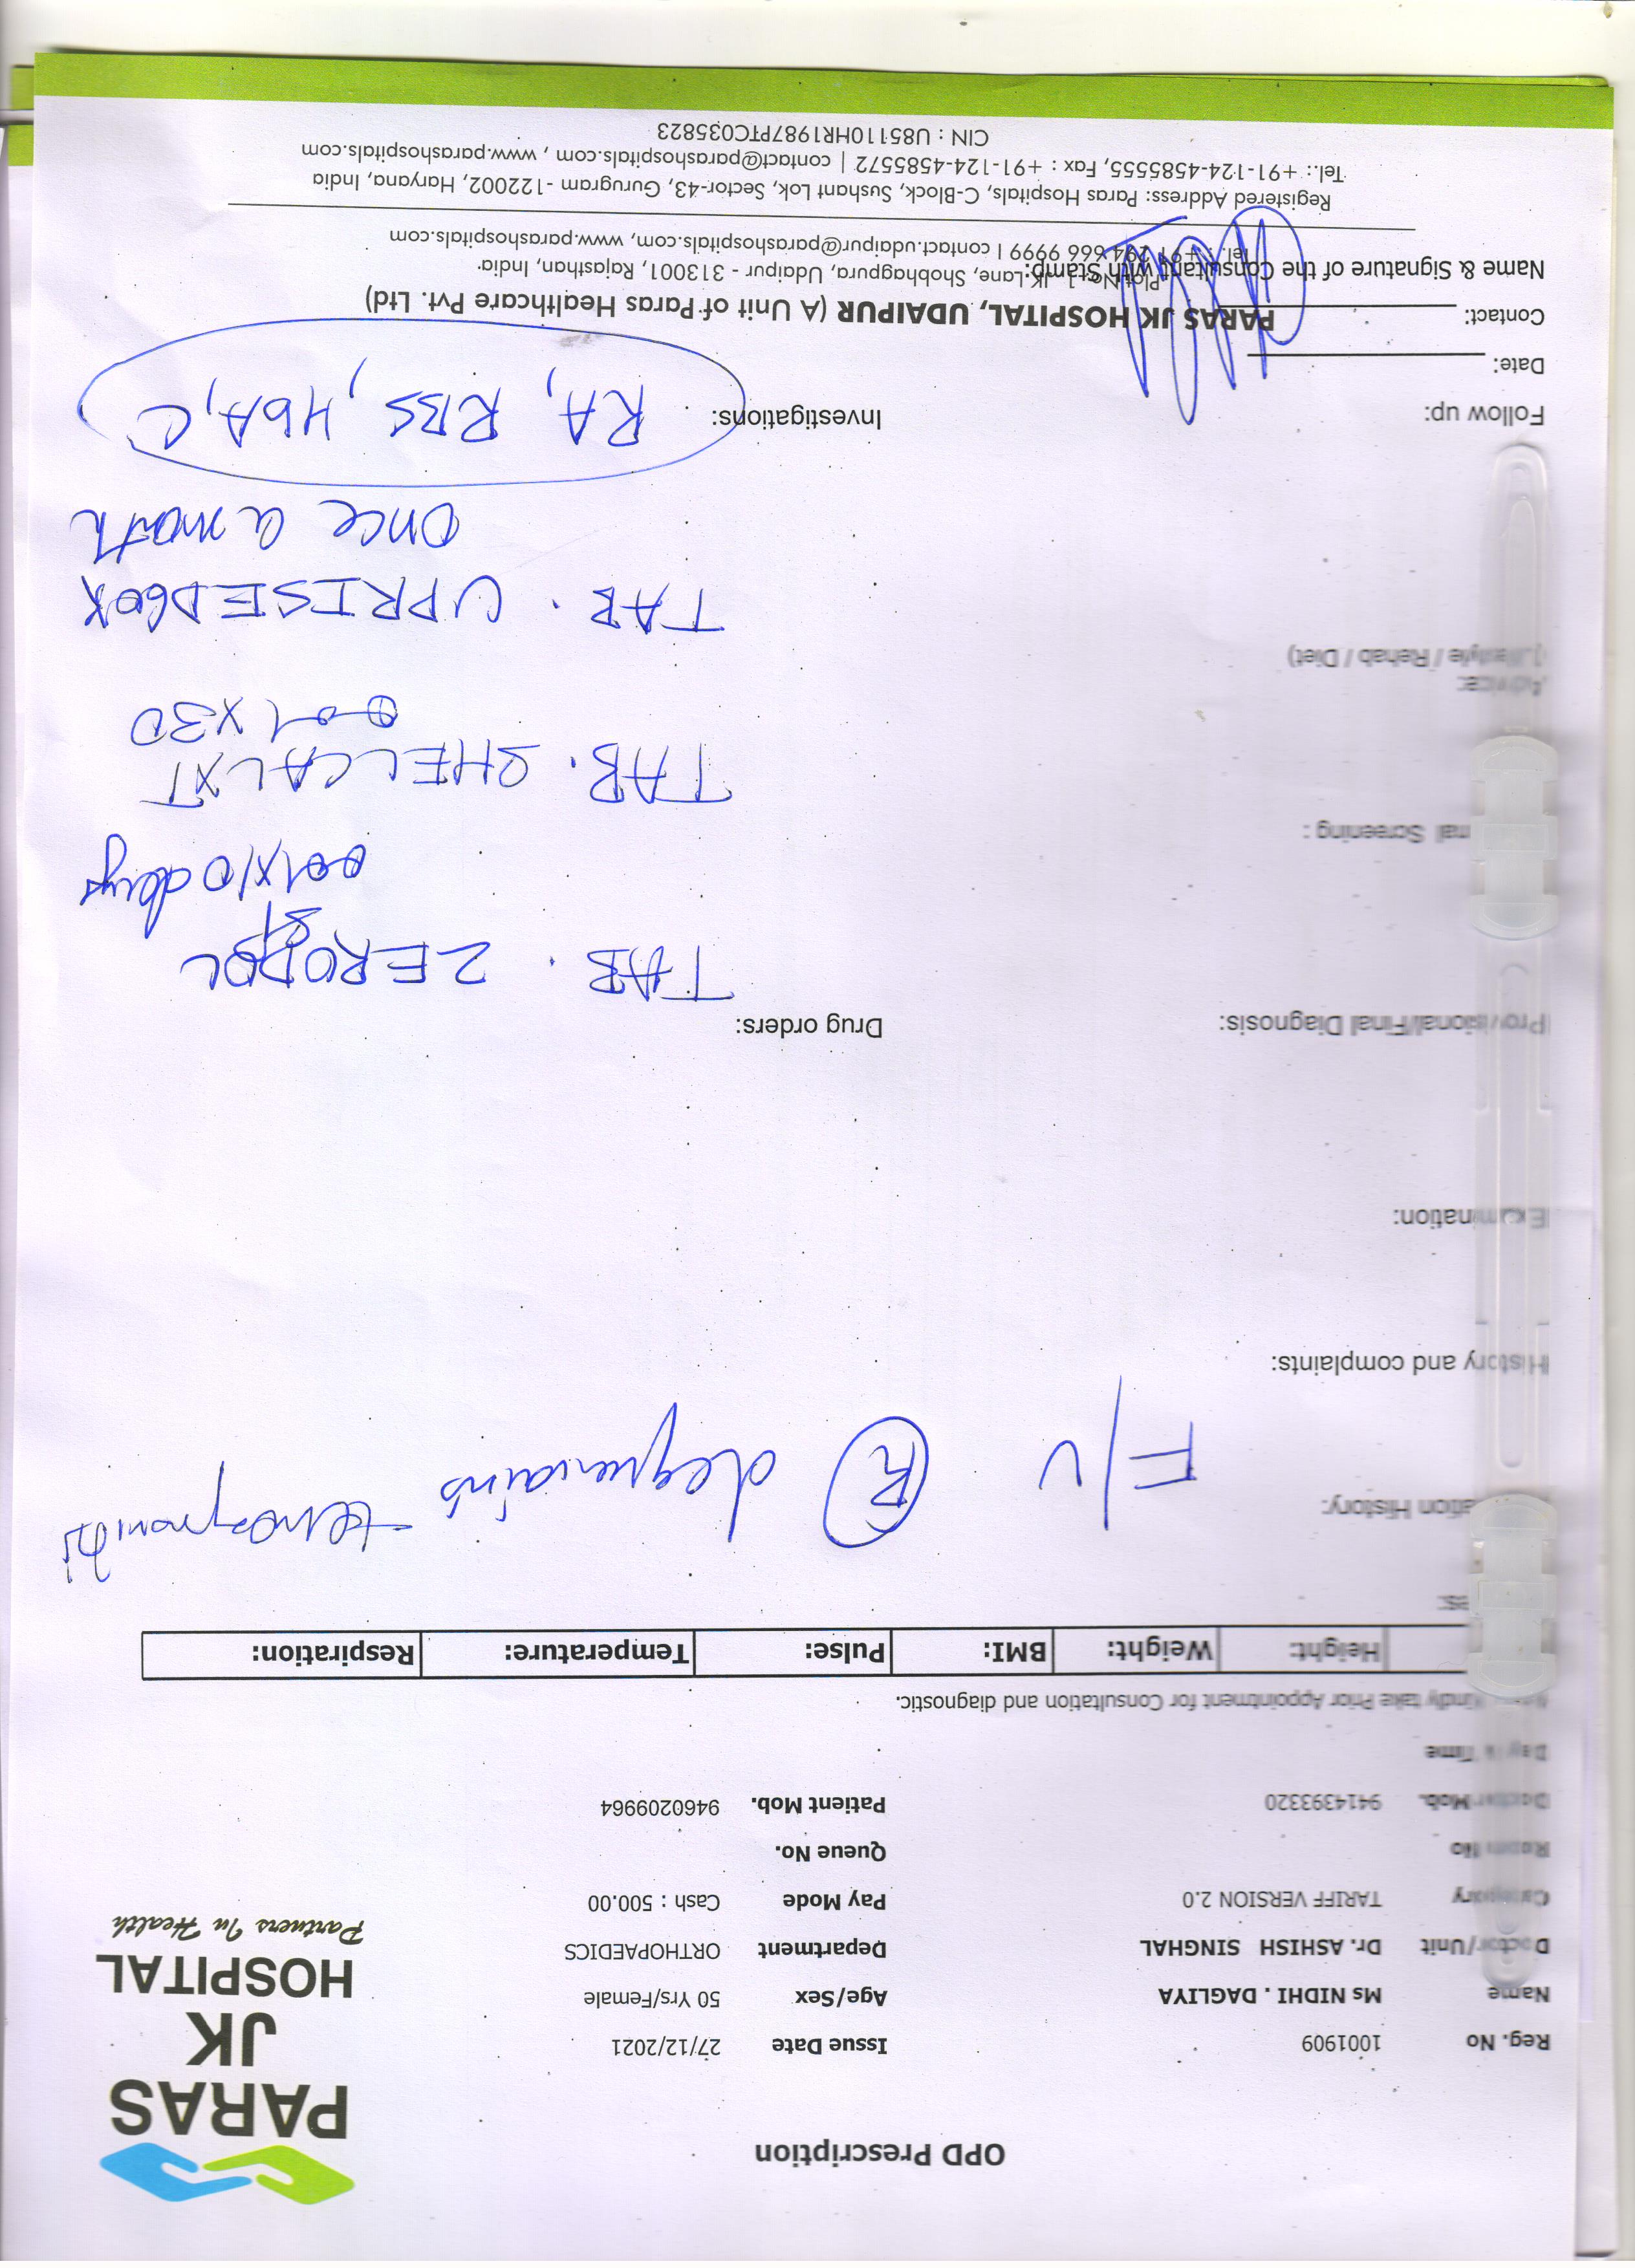 OPD Prescription
PARAS
JK
HOSPITAL
Partners In Health
Reg. No 1001909 Issue Date 27/12/2021
Name Ms NIDHI . DAGLIYA Age/Sex 50 Yrs/Female
Doctor/Unit Dr. ASHISH SINGHAL Department ORTHOPAEDICS
Category TARIFF VERSION 2.0 Pay Mode Cash : 500.00
Room No Queue No.
Doctor Mob. 9414393320 Patient Mob. 9460209964
Day & Time
Kindly take Prior Appointment for Consultation and diagnostic.
Height: Weight: BMI: Pulse: Temperature: Respiration:
History:
F/U R dequervains tenosynovitis
History and complaints:
Examination:
Provisional/Final Diagnosis: Drug orders:
TAB. ZERODOL
SP
001x10 days
Screening :
TAB. SHELCAL XT
0-0-1 x30
Advice:
(Lifestyle / Rehab / Diet)
TAB. UPRISE D 60K
once a month
Follow up: Investigations: RA, RBS, HbA1C
Date:
Contact:
PARAS JK HOSPITAL, UDAIPUR (A Unit of Paras Healthcare Pvt. Ltd)
Name & Signature of the Consultant with Stamp:
Plot No. 1, JK Lane, Shobhagpura, Udaipur - 313001, Rajasthan, India.
Tel. : +91 294 666 9999 | contact.udaipur@parashospitals.com, www.parashospitals.com
Registered Address: Paras Hospitals, C-Block, Sushant Lok, Sector-43, Gurugram -122002, Haryana, India
Tel.: +91-124-4585555, Fax : +91-124-4585572 | contact@parashospitals.com , www.parashospitals.com
CIN : U85110HR1987PTC035823